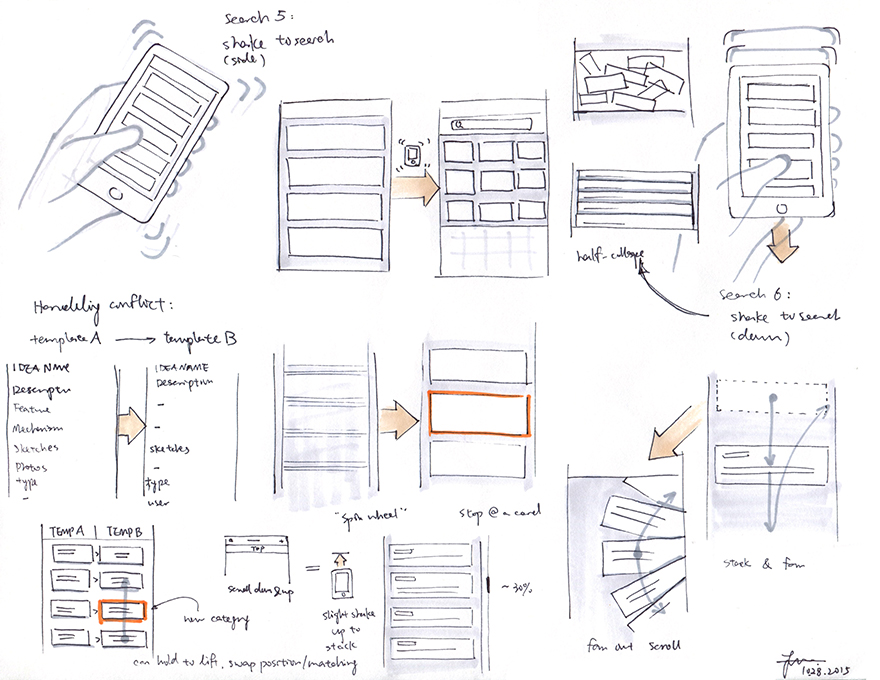 Search 5:
shake to search
(side)
half-collapse
Search 6:
shake to search
(down)
Handling conflict:
template A → template B
IDEA NAME
Description
Feature
Mechanism
Sketches
photos
type
-
IDEA NAME
Description
-
-
sketches
-
type
user
"spin wheel"
stop @ a card
stack & fan
fan out scroll
TEMP A
TEMP B
new category
can hold to lift, swap position/matching
TOP
scroll down & up
=
slight shake
up to
stack
~ 30%
10.28.2015